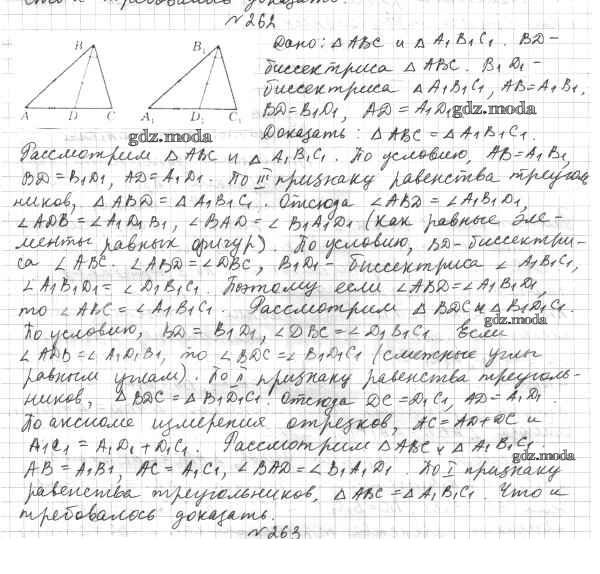 что и требовалось доказать.
№262
B
B₁
A D C A₁ D₁ C₁
Дано: △ABC и △A₁B₁C₁. BD-
биссектриса △ABC. B₁D₁-
биссектриса △A₁B₁C₁, AB=A₁B₁,
BD=B₁D₁, AD=A₁D₁ gdz.moda
gdz.moda
Доказать: △ABC=△A₁B₁C₁.
Рассмотрим △ABC и △A₁B₁C₁. По условию, AB=A₁B₁,
BD=B₁D₁, AD=A₁D₁. По III признаку равенства треуголь
ников, △ABD=△A₁B₁C₁. Отсюда ∠ABD=∠A₁B₁D₁,
∠ADB=∠A₁D₁B₁, ∠BAD=∠B₁A₁D₁ (как равные эле-
менты равных фигур). По условию, BD-биссектри-
са ∠ABC. ∠ABD=∠DBC, B₁D₁- биссектриса ∠A₁B₁C₁,
∠A₁B₁D₁=∠D₁B₁C₁. Поэтому если ∠ABD=∠A₁B₁D₁,
то ∠ABC=∠A₁B₁C₁. Рассмотрим △BDC и △B₁D₁C₁.
gdz.moda
По условию, BD=B₁D₁, ∠DBC=∠D₁B₁C₁. Если
∠ADB=∠A₁D₁B₁, то ∠BDC=∠B₁D₁C₁ (смежные углы
равным углам). По II признаку равенства треуголь-
ников, △BDC=△B₁D₁C₁. Отсюда DC=D₁C₁, AD=A₁D₁.
По аксиоме измерения отрезков, AC=AD+DC и
A₁C₁=A₁D₁+D₁C₁. Рассмотрим △ABC и △A₁B₁C₁.
gdz.moda
AB=A₁B₁, AC=A₁C₁, ∠BAD=∠B₁A₁D₁. По I признаку
равенства треугольников, △ABC=△A₁B₁C₁. Что и
требовалось доказать.
№263